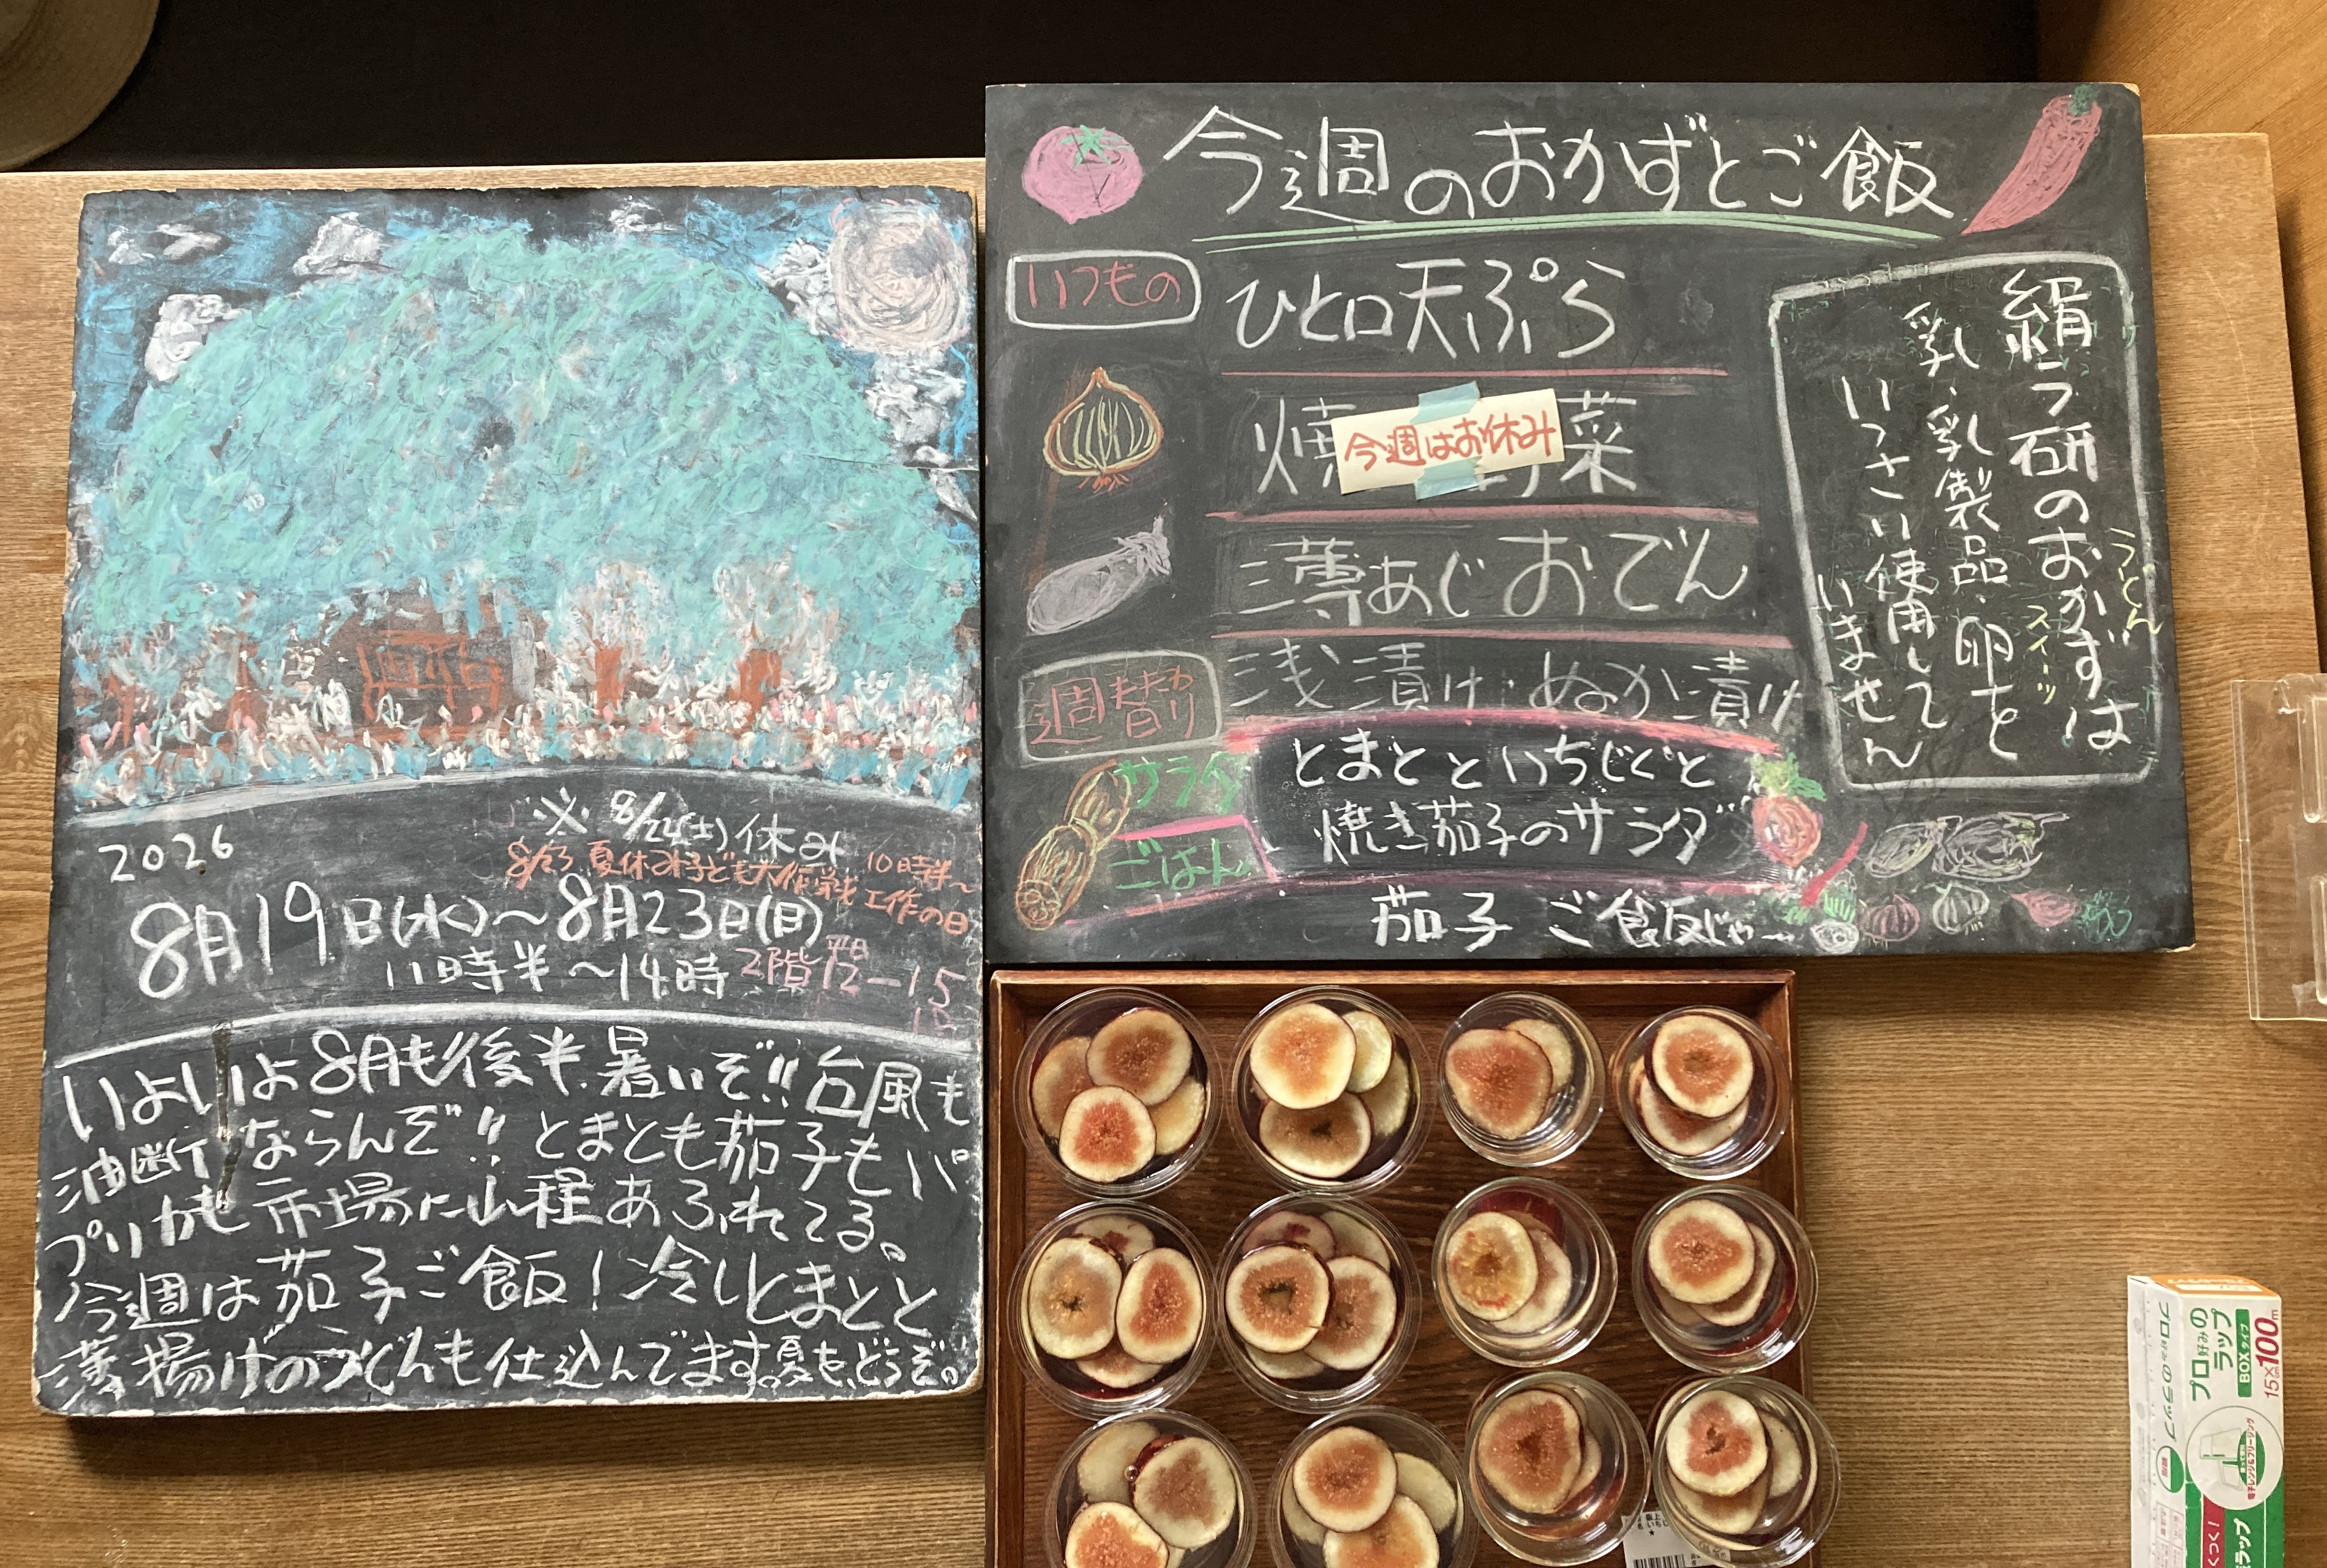 2026
※8/22(土)休み
8/23 夏休み子ども大作戦 10時半〜
工作の日
8月19日(水)〜8月23日(日)
11時半〜14時
2階 平日12-15
いよいよ8月も後半.暑いぞ!!台風も
油断ならんぞ!!とまとも茄子もパ
プリカも市場に山程あふれてる。
今週は茄子ご飯!冷しとまとと
薄揚げのうどんも仕込んでます。夏を、どうぞ。
今週のおかずとご飯
いつもの
ひと口天ぷら
焼 菜
今週はお休み
薄あじおでん
週替わり
浅漬け・ぬか漬け
サラダ
とまとといちじくと
焼き茄子のサラダ
ごはん
茄子ご飯じゃー
絹ラ研のおかずは
うどん
スイーツ
乳、乳製品、卵を
いっさい使用して
いません
プロ好みの
ラップ
BOXタイプ
15cm×100m
プロ好みのラップ